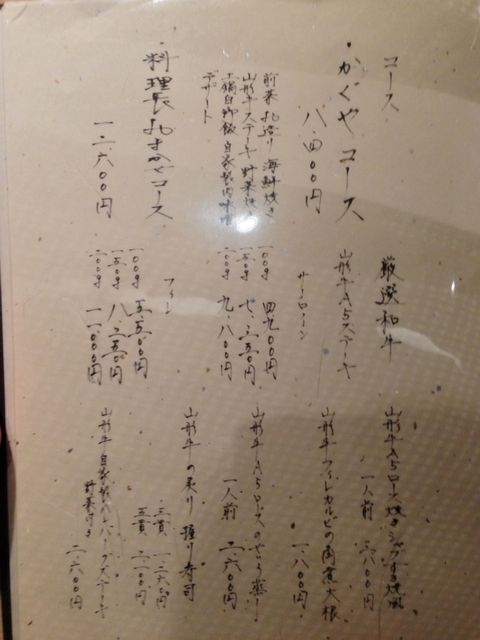 コース
・かぐやコース
八、四〇〇円
前菜 お造り 海鮮焼き
山形牛ステーキ 野菜焼き
土鍋白御飯 自家製肉味噌
デザート
・料理長おまかせコース
一二、六〇〇円
厳選和牛
山形牛A5ステーキ
サーロイン
一〇〇g 四、九〇〇円
一五〇g 七、三五〇円
二〇〇g 九、八〇〇円
フィレ
一〇〇g 五、五〇〇円
一五〇g 八、二五〇円
二〇〇g 一一、〇〇〇円
山形牛A5ロース焼きしゃぶすき焼風
一人前 二、八〇〇円
山形牛フィレカルビの角煮大根
一、八〇〇円
山形牛A5ロースのせいろ蒸し
一人前 二、六〇〇円
山形牛の炙り握り寿司
二貫
三貫
山形牛自家製ハンバーグステーキ
野菜付き
二、六〇〇円